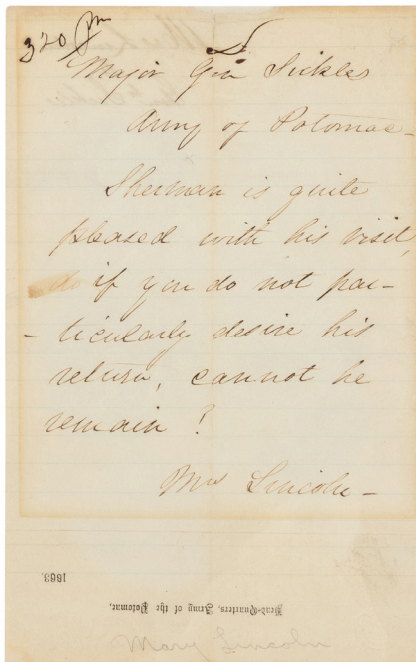 320 Pm
Major Gen Sickles
Army of Potomac -
Sherman is quite
pleased with his visit,
do if you do not par-
- ticularly desire his
return, cannot he
remain?
Mrs Lincoln -
Head-Quarters, Army of the Potomac,
1863.
Mary Lincoln